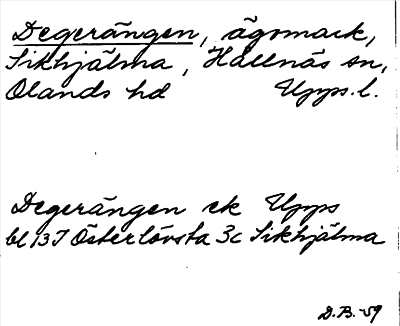 Degerängen, ägomark,
Sikhjälma, Hållnäs sn,
Olands hd Upps. l.
Degerängen ek Upps
bl 13I Österlövsta 3c Sikhjälma
D.B. -59